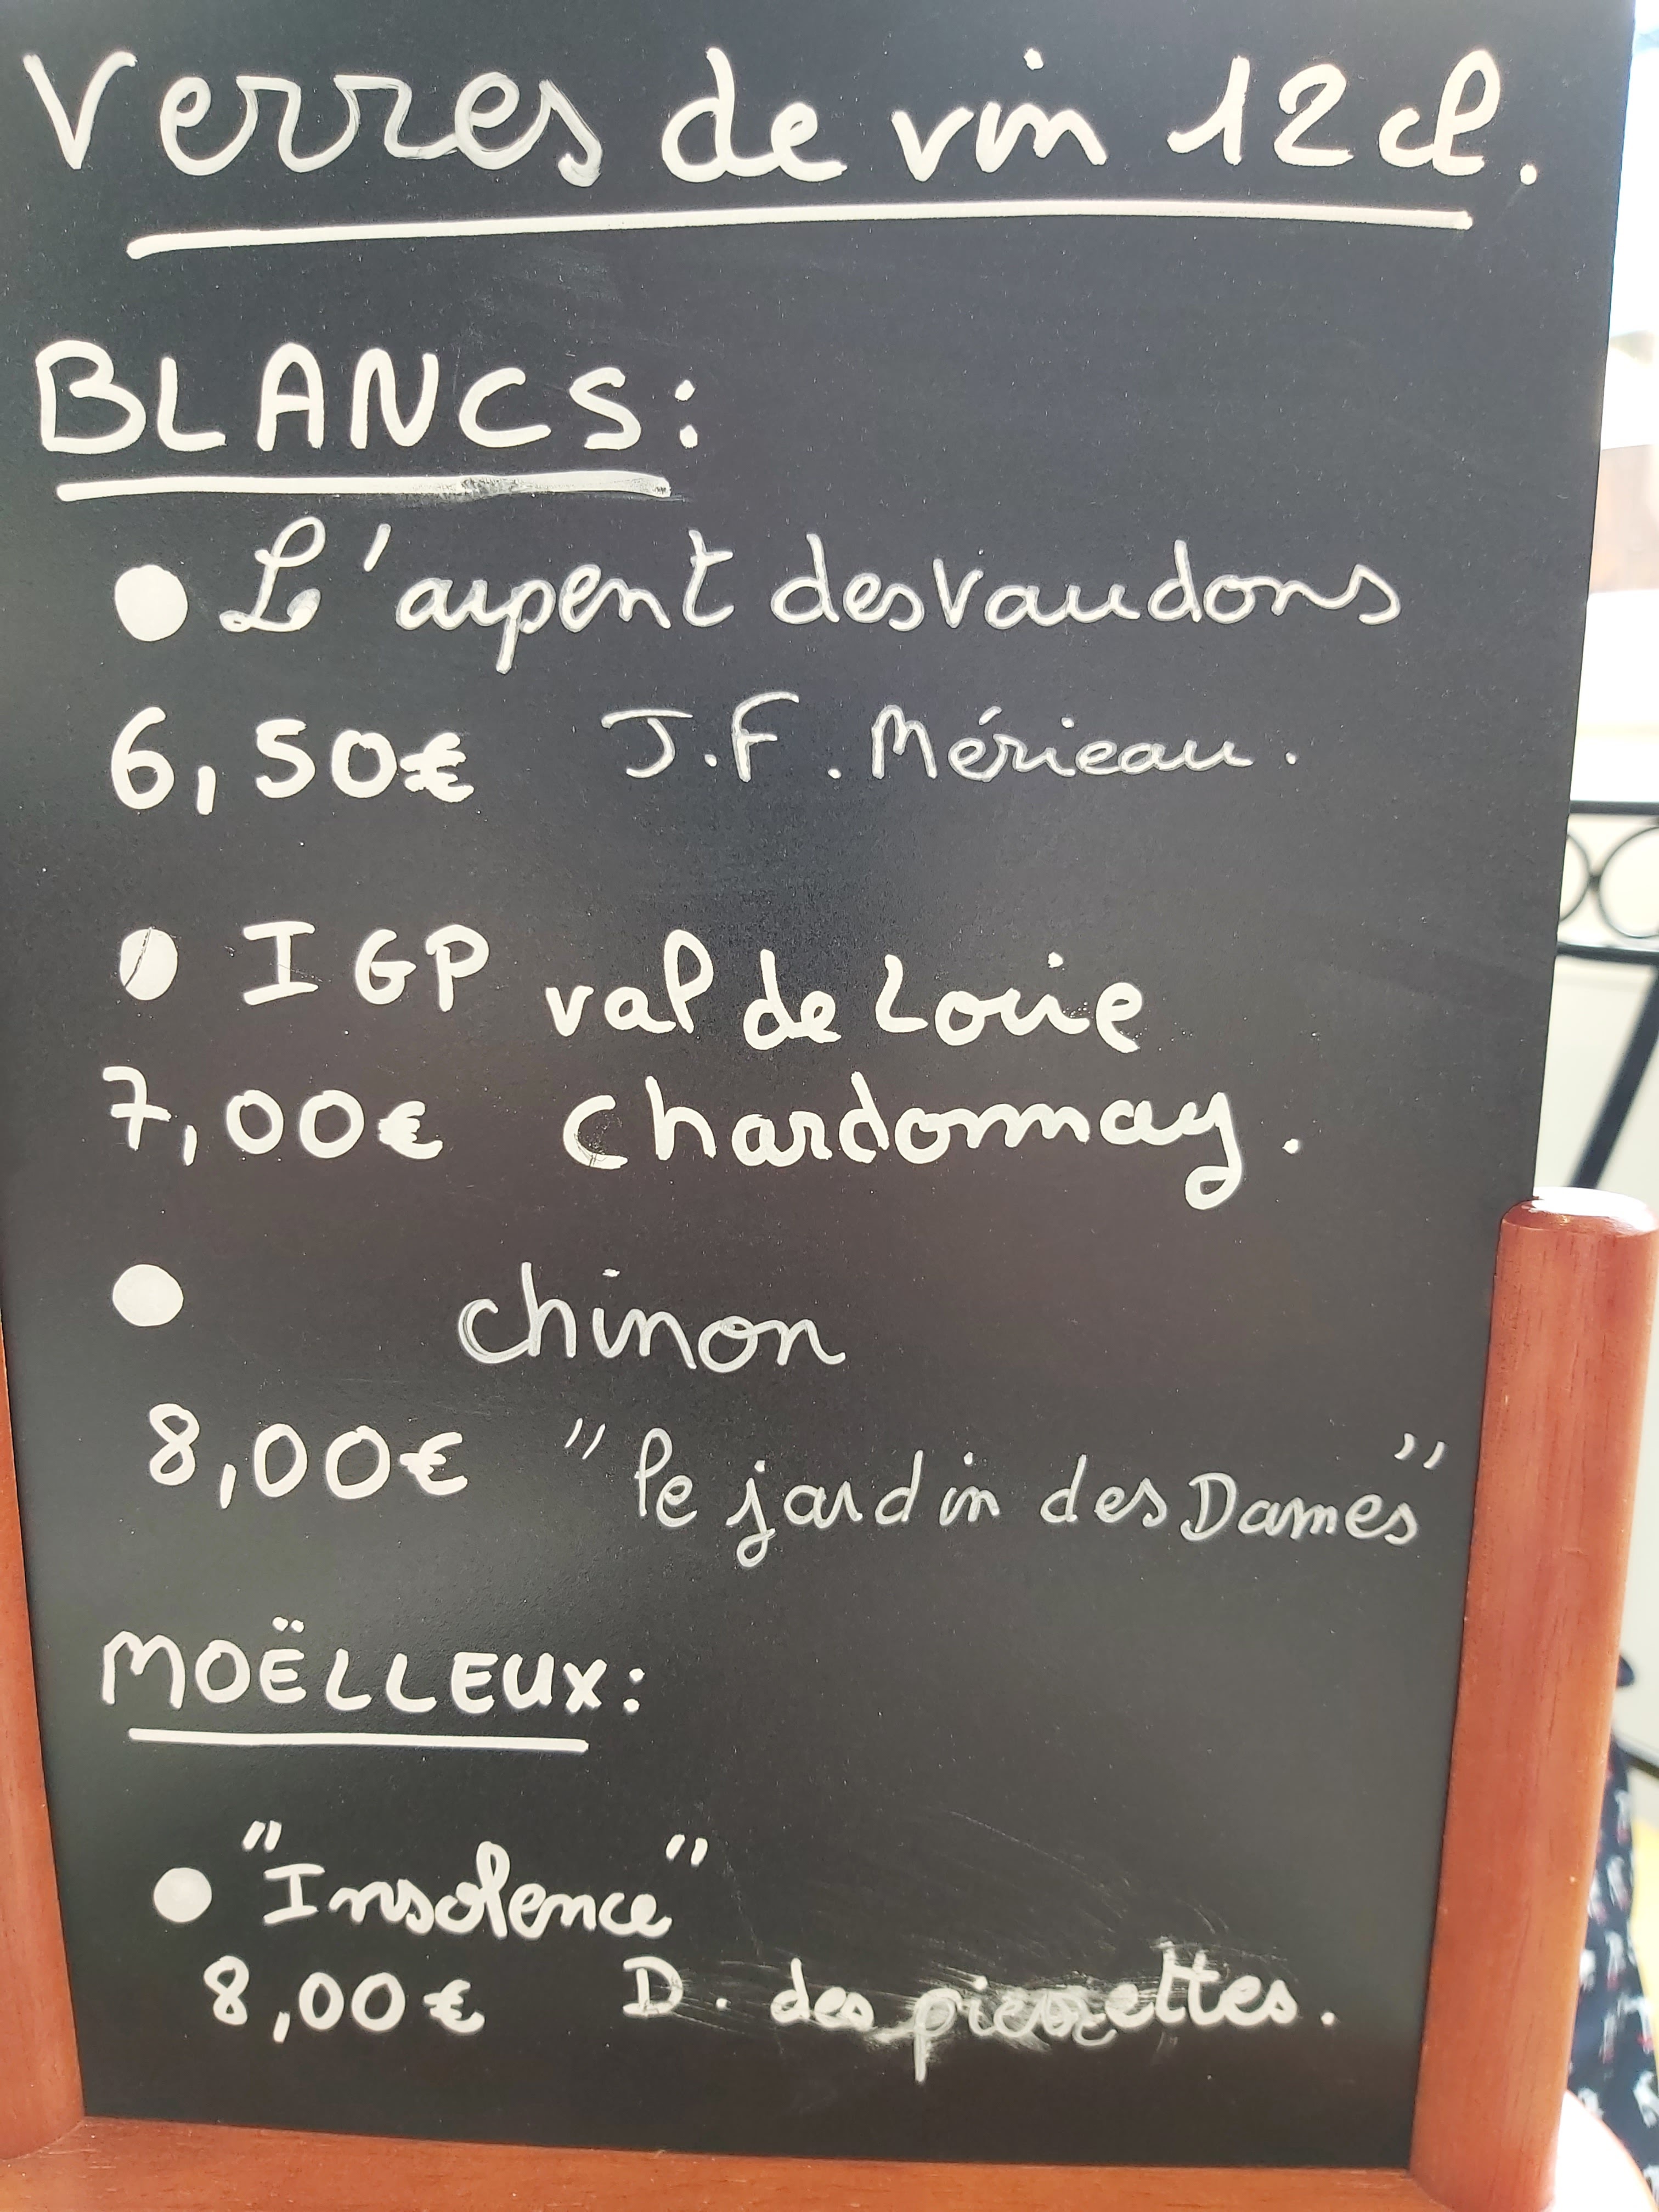 Verres de vin 12cl.
BLANCS:
• L'arpent des Vaudons
6,50€ J.F. Mérieau.
• IGP val de Loire
7,00€ Chardonnay.
• chinon
8,00€ "le jardin des Dames"
MOËLLEUX:
• "Insolence"
8,00€ D. des pierrettes.